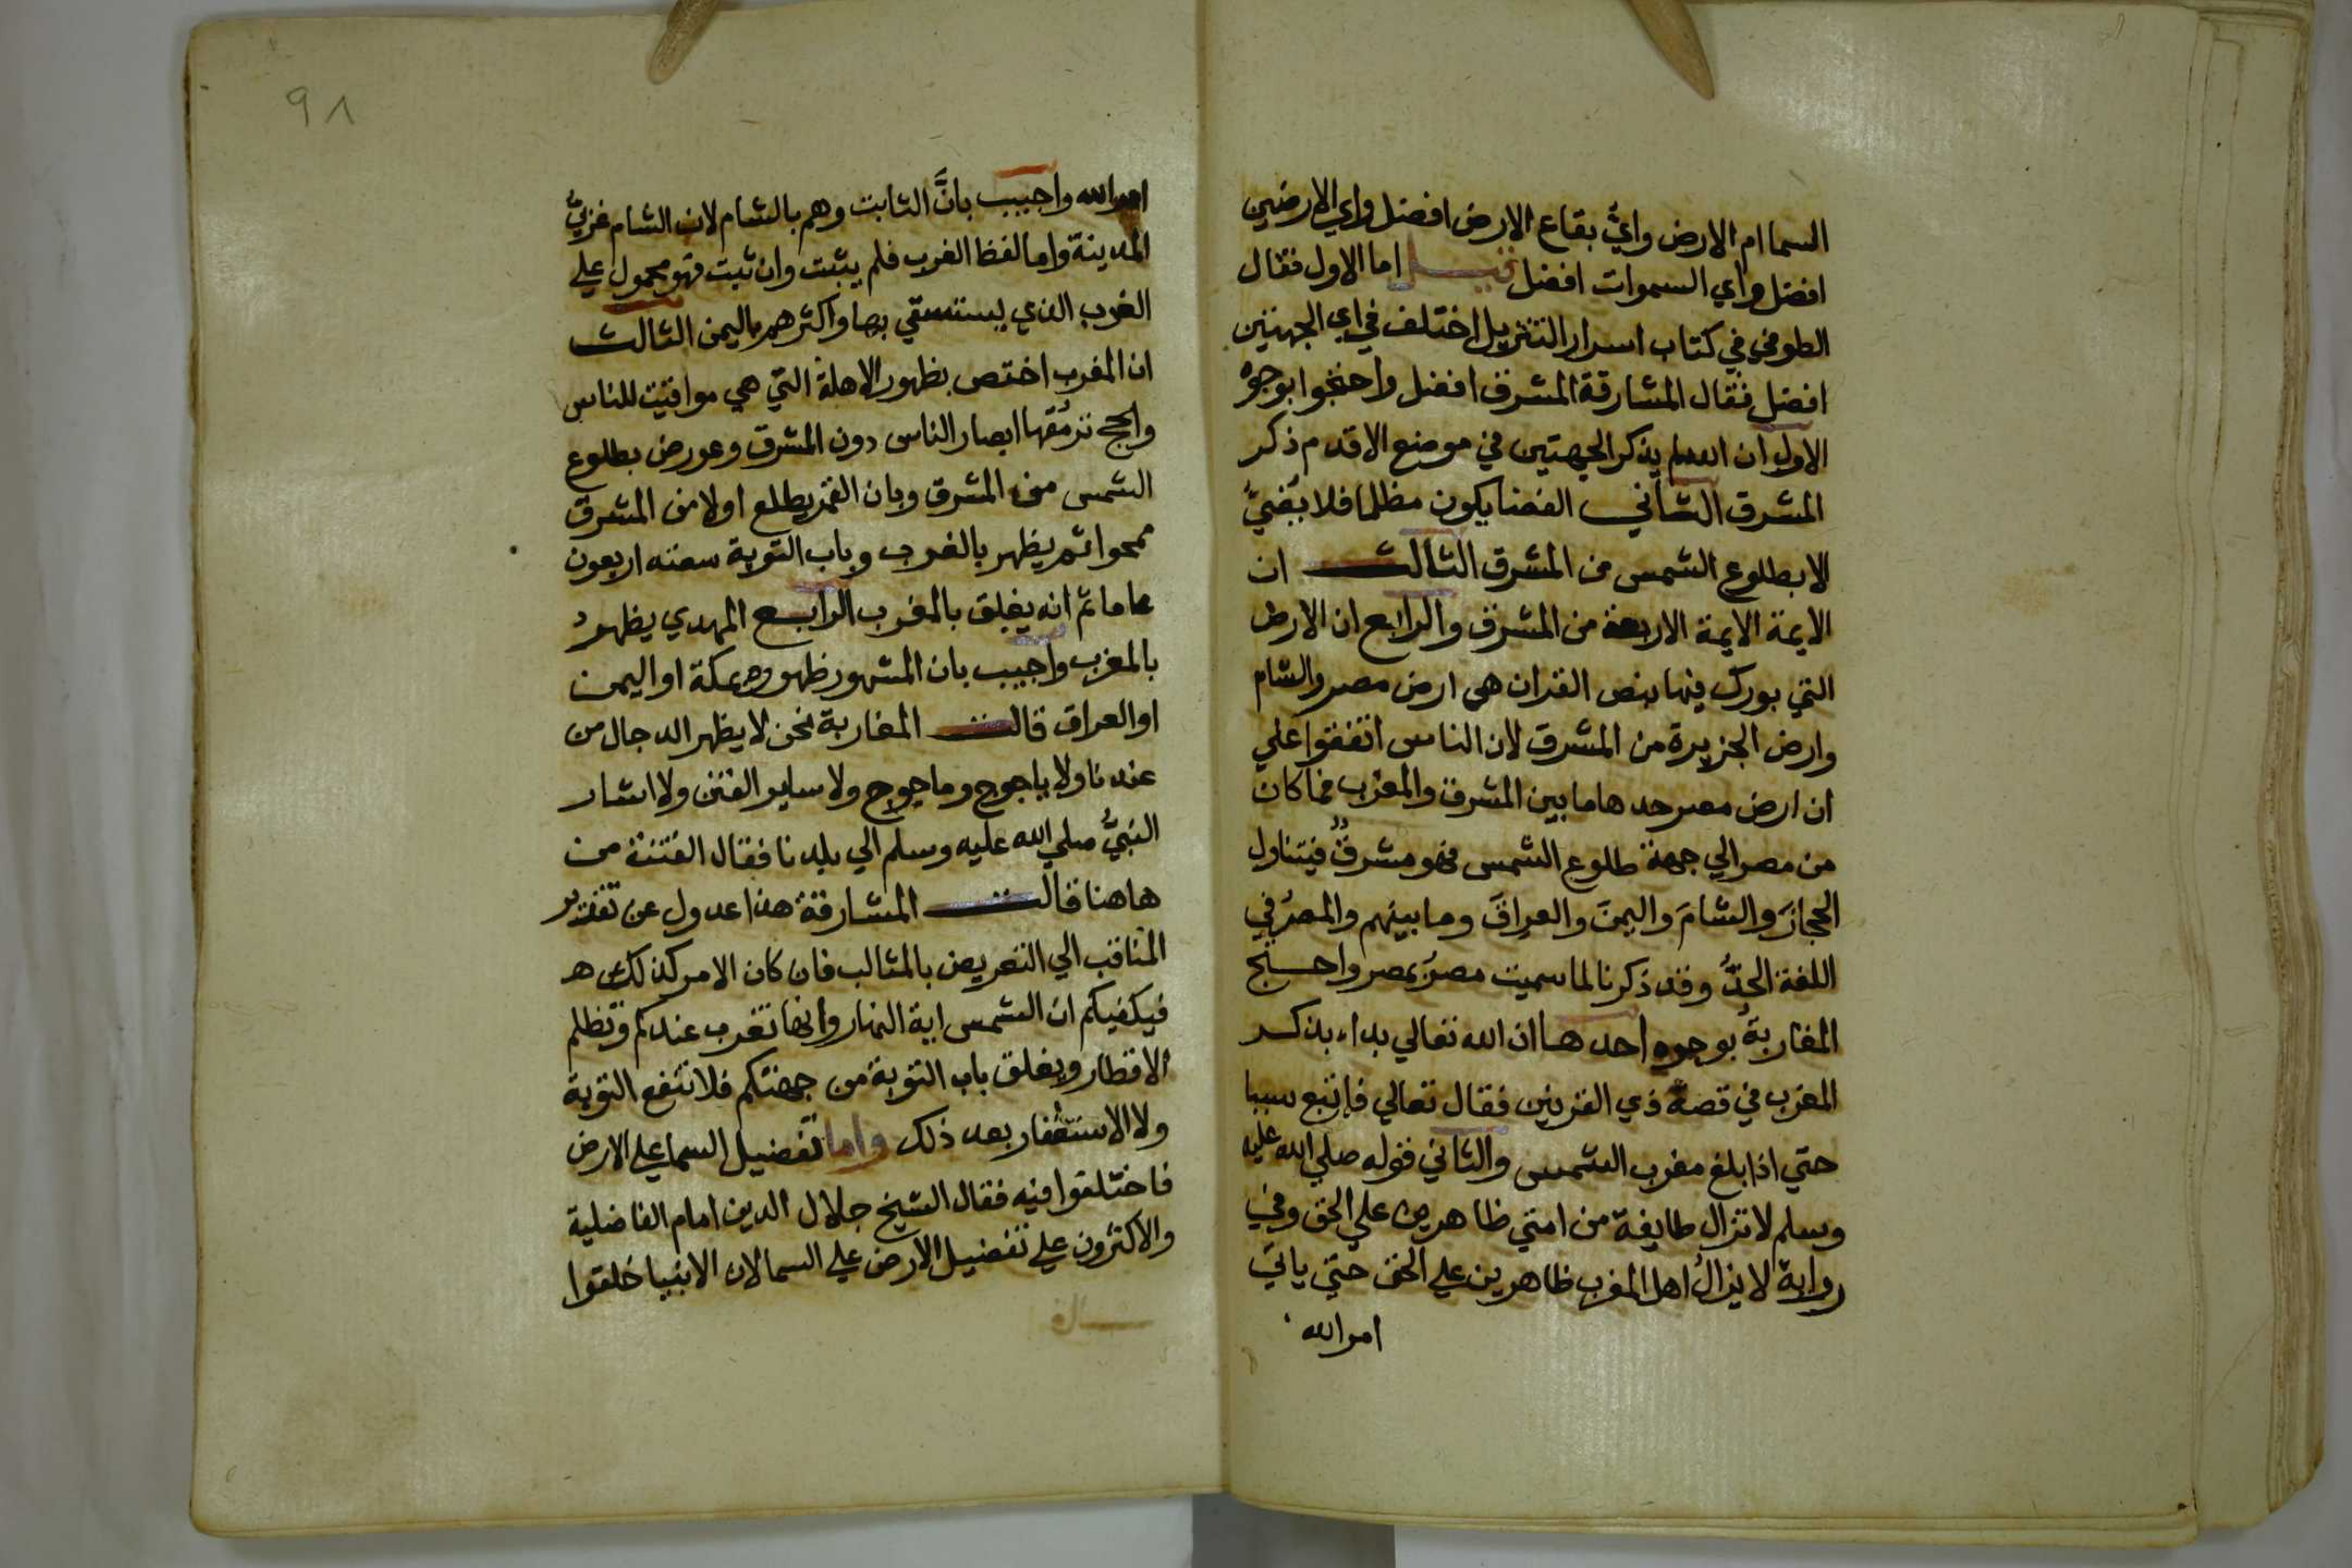 السما ام الارض واي بقاع الارض افضل واي الارضين
افضل واي السموات افضل قيل اما الاول فقال
الطوفي في كتاب اسرار التنزيل اختلف في اي الجهتين
افضل فقال المشارقة المشرق افضل واحتجوا بوجوه
الاول ان الله لم يذكر الجهتين في موضع الا قدم ذكر
المشرق الثاني الفضا يكون مظلما فلا يضيئ
الا بطلوع الشمس من المشرق الثالث ان
الايمة الايمة الاربعة من المشرق والرابع ان الارض
التي بورك فيها بنص القران هي ارض مصر والشام
وارض الجزيرة من المشرق لان الناس اتفقوا علي
ان ارض مصر حدها ما بين المشرق والمغرب فما كان
من مصر الي جهة طلوع الشمس فهو مشرق فيتناول
الحجازَ والشامَ واليمنَ والعراقَ وما بينهم والمصرُ في
اللغة الحدُّ وقد ذكرنا لما سميت مصرُ بمصر واحتج
المغاربة بوجوه احدها ان الله تعالي بداء بذكر
المغرب في قصة ذي القرنين فقال تعالي فاتبع سببا
حتي اذا بلغ مغرب الشمس والثاني قوله صلي الله عليه
وسلم لا تزال طايفة من امتي ظاهرين علي الحق وفي
رواية لا يزالُ اهل المغرب ظاهرين علي الحق حتي ياتي
امر الله
٩٨
امر الله واجيب بانَّ الثابت وهم بالشام لان الشام غربيُّ
المدينة واما لفظ الغرب فلم يثبت وان ثبت فهو محمول علي
الغرب الذي يستسقي بها واكثرهم باليمن الثالث
ان المغرب اختص بظهور الاهلة التي هي مواقيت للناس
والحج ترمُقها ابصار الناس دون المشرق وعورض بطلوع
الشمس من المشرق وبان القمر يطلع اولا من المشرق
ممحوا ثم يظهر بالغرب وباب التوبة سعته اربعون
عاما ثم انه يغلق بالمغرب الرابع المهدي يظهرُ
بالمغرب واجيب بان المشهور ظهوره بمكة او اليمن
او العراق قالت المغاربة نحن لا يظهر الدجال من
عندنا ولا ياجوج وماجوج ولا ساير الفتن ولا اشار
النبيُّ صلي الله عليه وسلم الي بلدنا فقال الفتنة من
هاهنا قالت المشارقة هذا عدول عن تقرير
المناقب الي التعريض بالمثالب فان كان الامر كذلك هـ
فيكفيكم ان الشمس اية النهار وانها تغرب عندكم وتظلم
الاقطار ويغلق باب التوبة من جهتكم فلا تنفع التوبة
ولا الاستغفار بعد ذلك واما تفضيل السما علي الارض
فاختلفوا فيه فقال الشيخ جلال الدين امام الفاضلية
والاكثرون علي تفضيل الارض علي السما لان الانبيا خلقوا